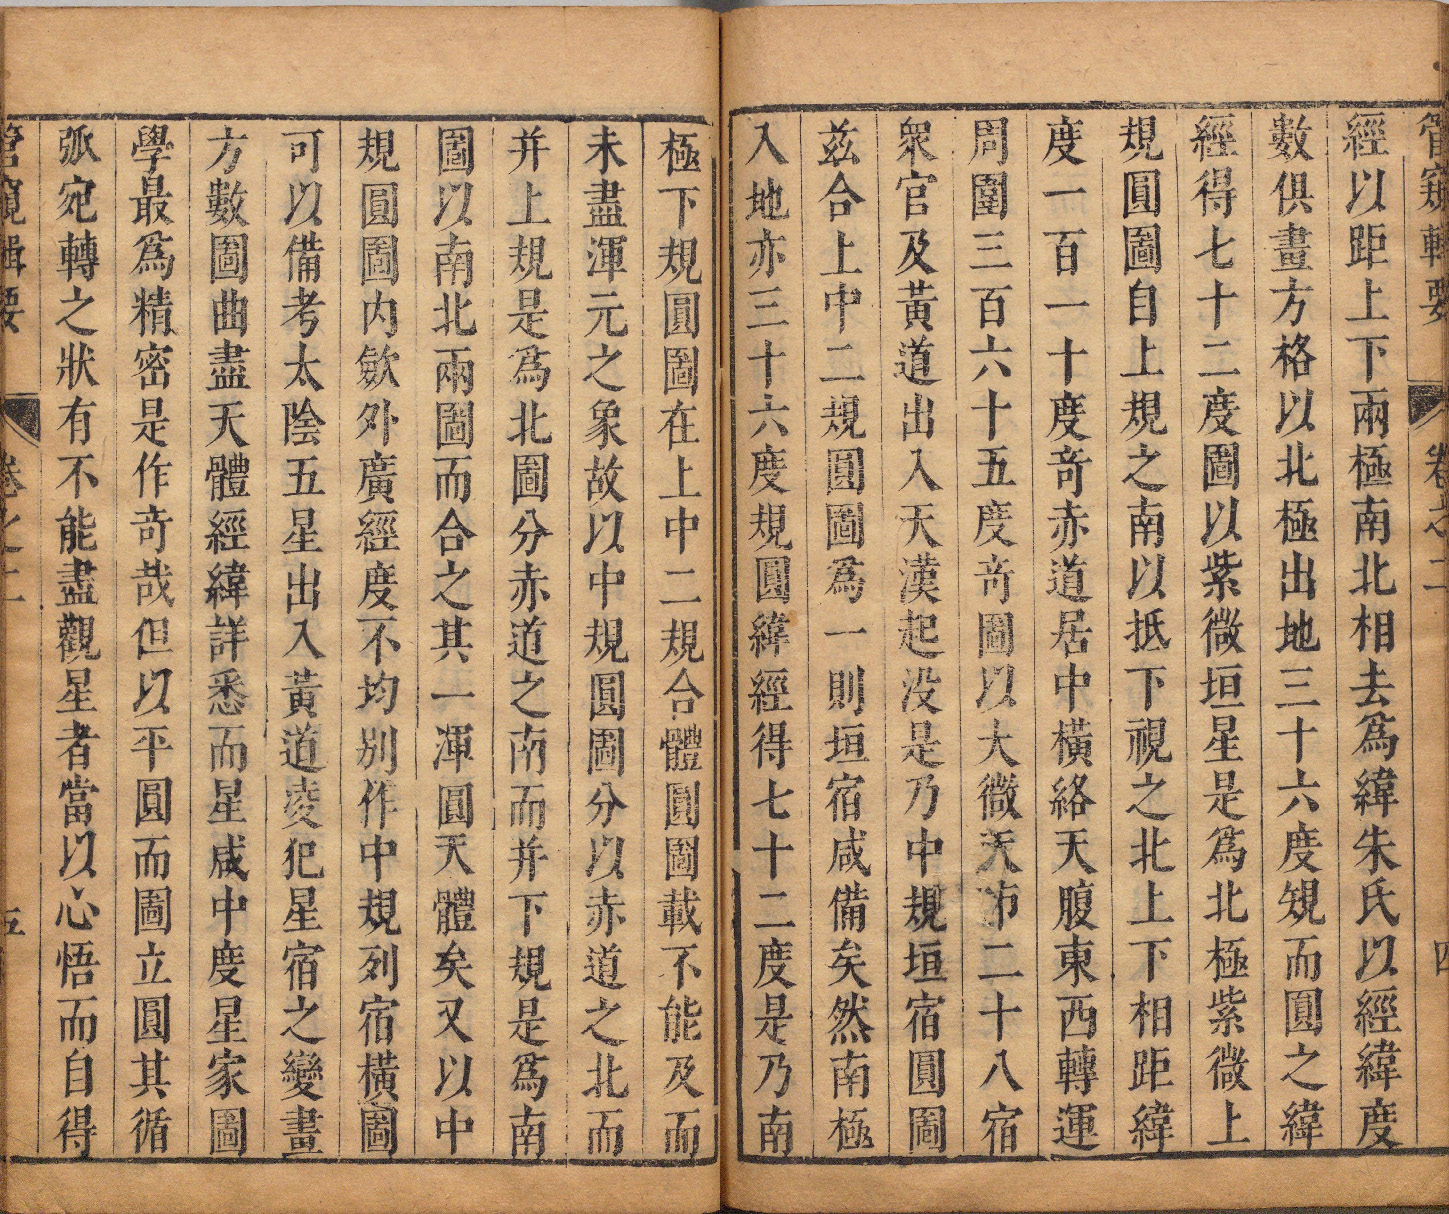 管窺輯要 卷之二 四
經以距上下兩極南北相去爲緯朱氏以經緯度
數俱畫方格以北極出地三十六度規而圓之緯
經得七十二度圖以紫微垣星是爲北極紫微上
規圓圖自上規之南以抵下視之北上下相距緯
度一百一十度竒赤道居中橫絡天腹東西轉運
周圍三百六十五度竒圖以太微天市二十八宿
衆官及黃道出入天漢起没是乃中規垣宿圓圖
兹合上中二規圓圖爲一則垣宿咸備矣然南極
入地亦三十六度規圓緯經得七十二度是乃南
極下規圓圖在上中二規合體圓圖載不能及而
未盡渾元之象故以中規圓圖分以赤道之北而
并上規是爲北圖分赤道之南而并下規是爲南
圖以南北兩圖而合之其一渾圓天體矣又以中
規圓圖内歛外廣經度不均别作中規列宿橫圖
可以備考太陰五星出入黃道凌犯星宿之變畫
方數圖曲盡天體經緯詳悉而星咸中度星家圖
學最爲精密是作竒哉但以平圓而圖立圓其循
弧宛轉之狀有不能盡觀星者當以心悟而自得
管窺輯要 卷之二 五